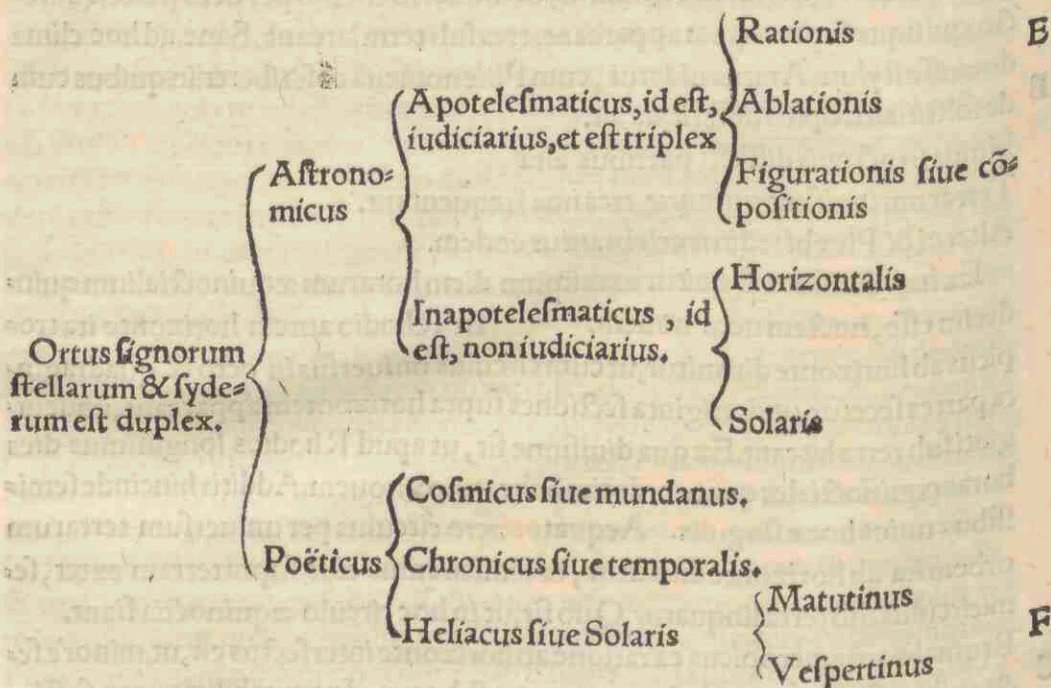 Ortus signorum
stellarum & syde⸗
rum est duplex.
Astrono⸗
micus
Apotelesmaticus, id est,
iudiciarius, et est triplex
Rationis
Ablationis
Figurationis siue cõ⸗
positionis
Inapotelesmaticus, id
est, non iudiciarius.
Horizontalis
Solaris
Poëticus
Cosmicus siue mundanus.
Chronicus siue temporalis.
Heliacus siue Solaris
Matutinus
Vespertinus
E
F